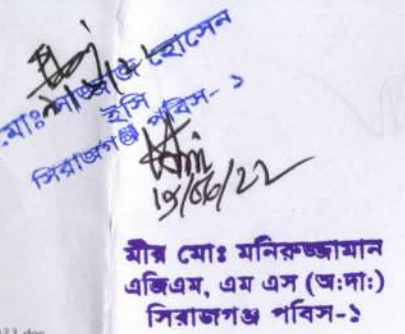 মোঃ সাজ্জাত হোসেন
ইসি
সিরাজগঞ্জ পবিস- ১
19/06/22
মীর মোঃ মনিরুজ্জামান
এজিএম, এম এস (অ:দা:)
সিরাজগঞ্জ পবিস-১